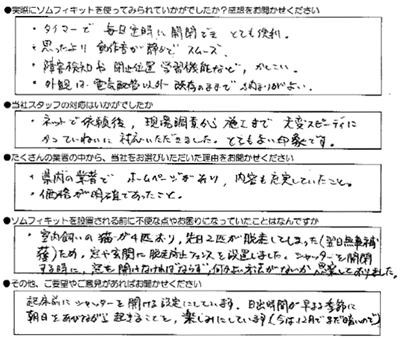 ●実際にソムフィキットを使ってみられていかがでしたか？感想をお聞かせください
・タイマーで 毎日定時に開閉でき とても便利。
・思ったより 動作音が静かで スムーズ。
・障害検知や 開止位置 学習機能など、かしこい。
・外観は、電気配管以外 既存のままで 納まりがよい。
●当社スタッフの対応はいかがでしたか
・ネットで依頼後、現場調査から 施工まで 大変スピーディに
かつていねいに 対応いただきました。とてもよい印象です。
●たくさんの業者の中から、当社をお選びいただいた理由をお聞かせください
・県内の業者で ホームページがあり、内容も充実していたこと。
・価格が明確であったこと。
●ソムフィキットを設置される前に不便な点やお困りになっていたことはなんですか
・室内飼いの 猫が4匹おり、先日2匹が脱走してしまった(翌日無事捕
獲)ため、窓や玄関に 脱走防止フェンスを設置しました。シャッターを開閉
する時に、窓を開けなければならず、何かよい方法がないか思案しておりました。
●その他、ご要望やご意見がありましたらお聞かせください
起床前に シャッターを 開ける設定にしています。日出時間が早まる季節に
朝日をあびながら 起きることを、楽しみにしています(今は12月でまだ暗いので)